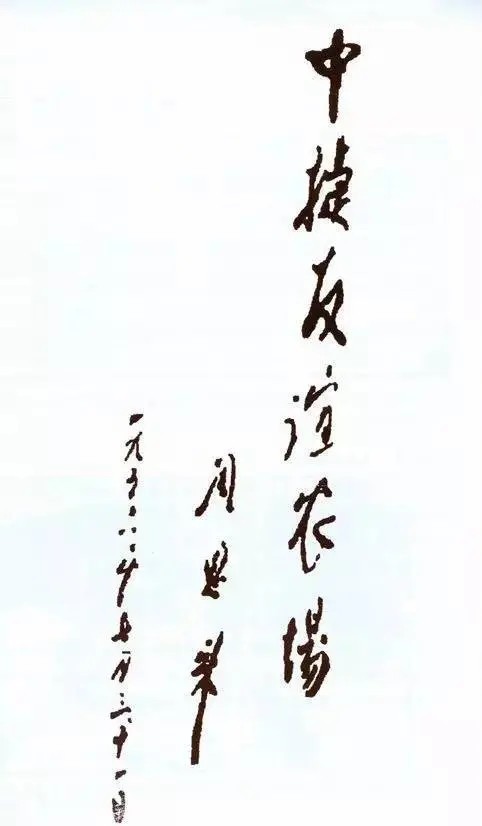 中捷友谊农場
周恩来
一九五六年七月三十一日